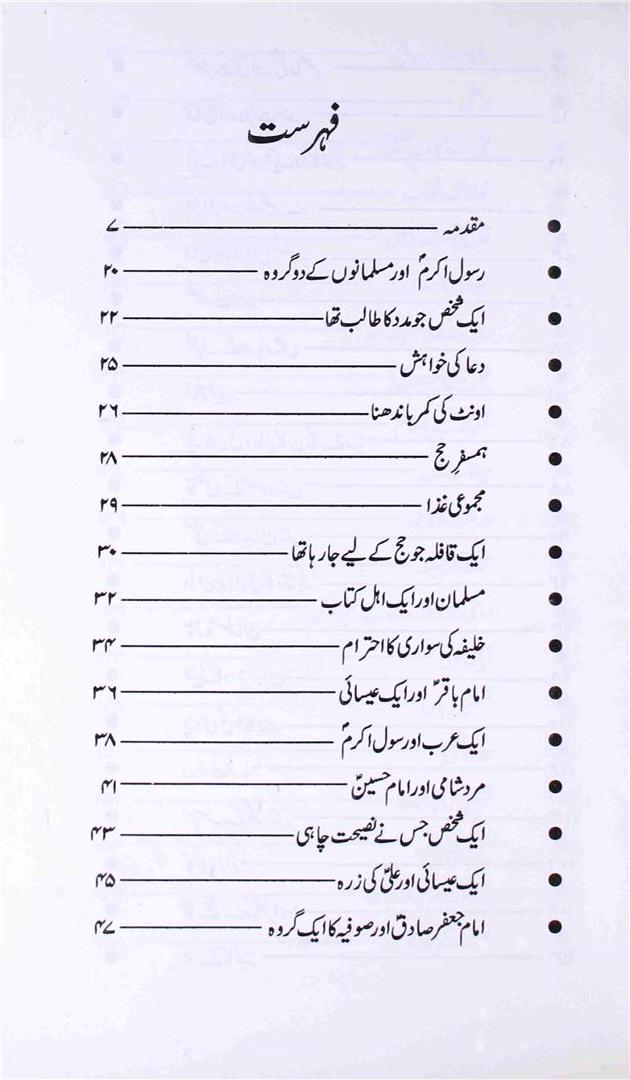 فہرست
● مقدمہ ۷
● رسول اکرمؐ اور مسلمانوں کے دو گروہ ۲۰
● ایک شخص جو مدد کا طالب تھا ۲۲
● دعا کی خواہش ۲۵
● اونٹ کی کمر باندھنا ۲۶
● ہمسفرِ حج ۲۸
● مجموعی غذا ۲۹
● ایک قافلہ جو حج کے لیے جا رہا تھا ۳۰
● مسلمان اور ایک اہل کتاب ۳۲
● خلیفہ کی سواری کا احترام ۳۴
● امام باقرؑ اور ایک عیسائی ۳۶
● ایک عرب اور رسول اکرمؐ ۳۸
● مرد شامی اور امام حسینؑ ۴۱
● ایک شخص جس نے نصیحت چاہی ۴۳
● ایک عیسائی اور علیؑ کی زرہ ۴۵
● امام جعفر صادقؑ اور صوفیہ کا ایک گروہ ۴۷